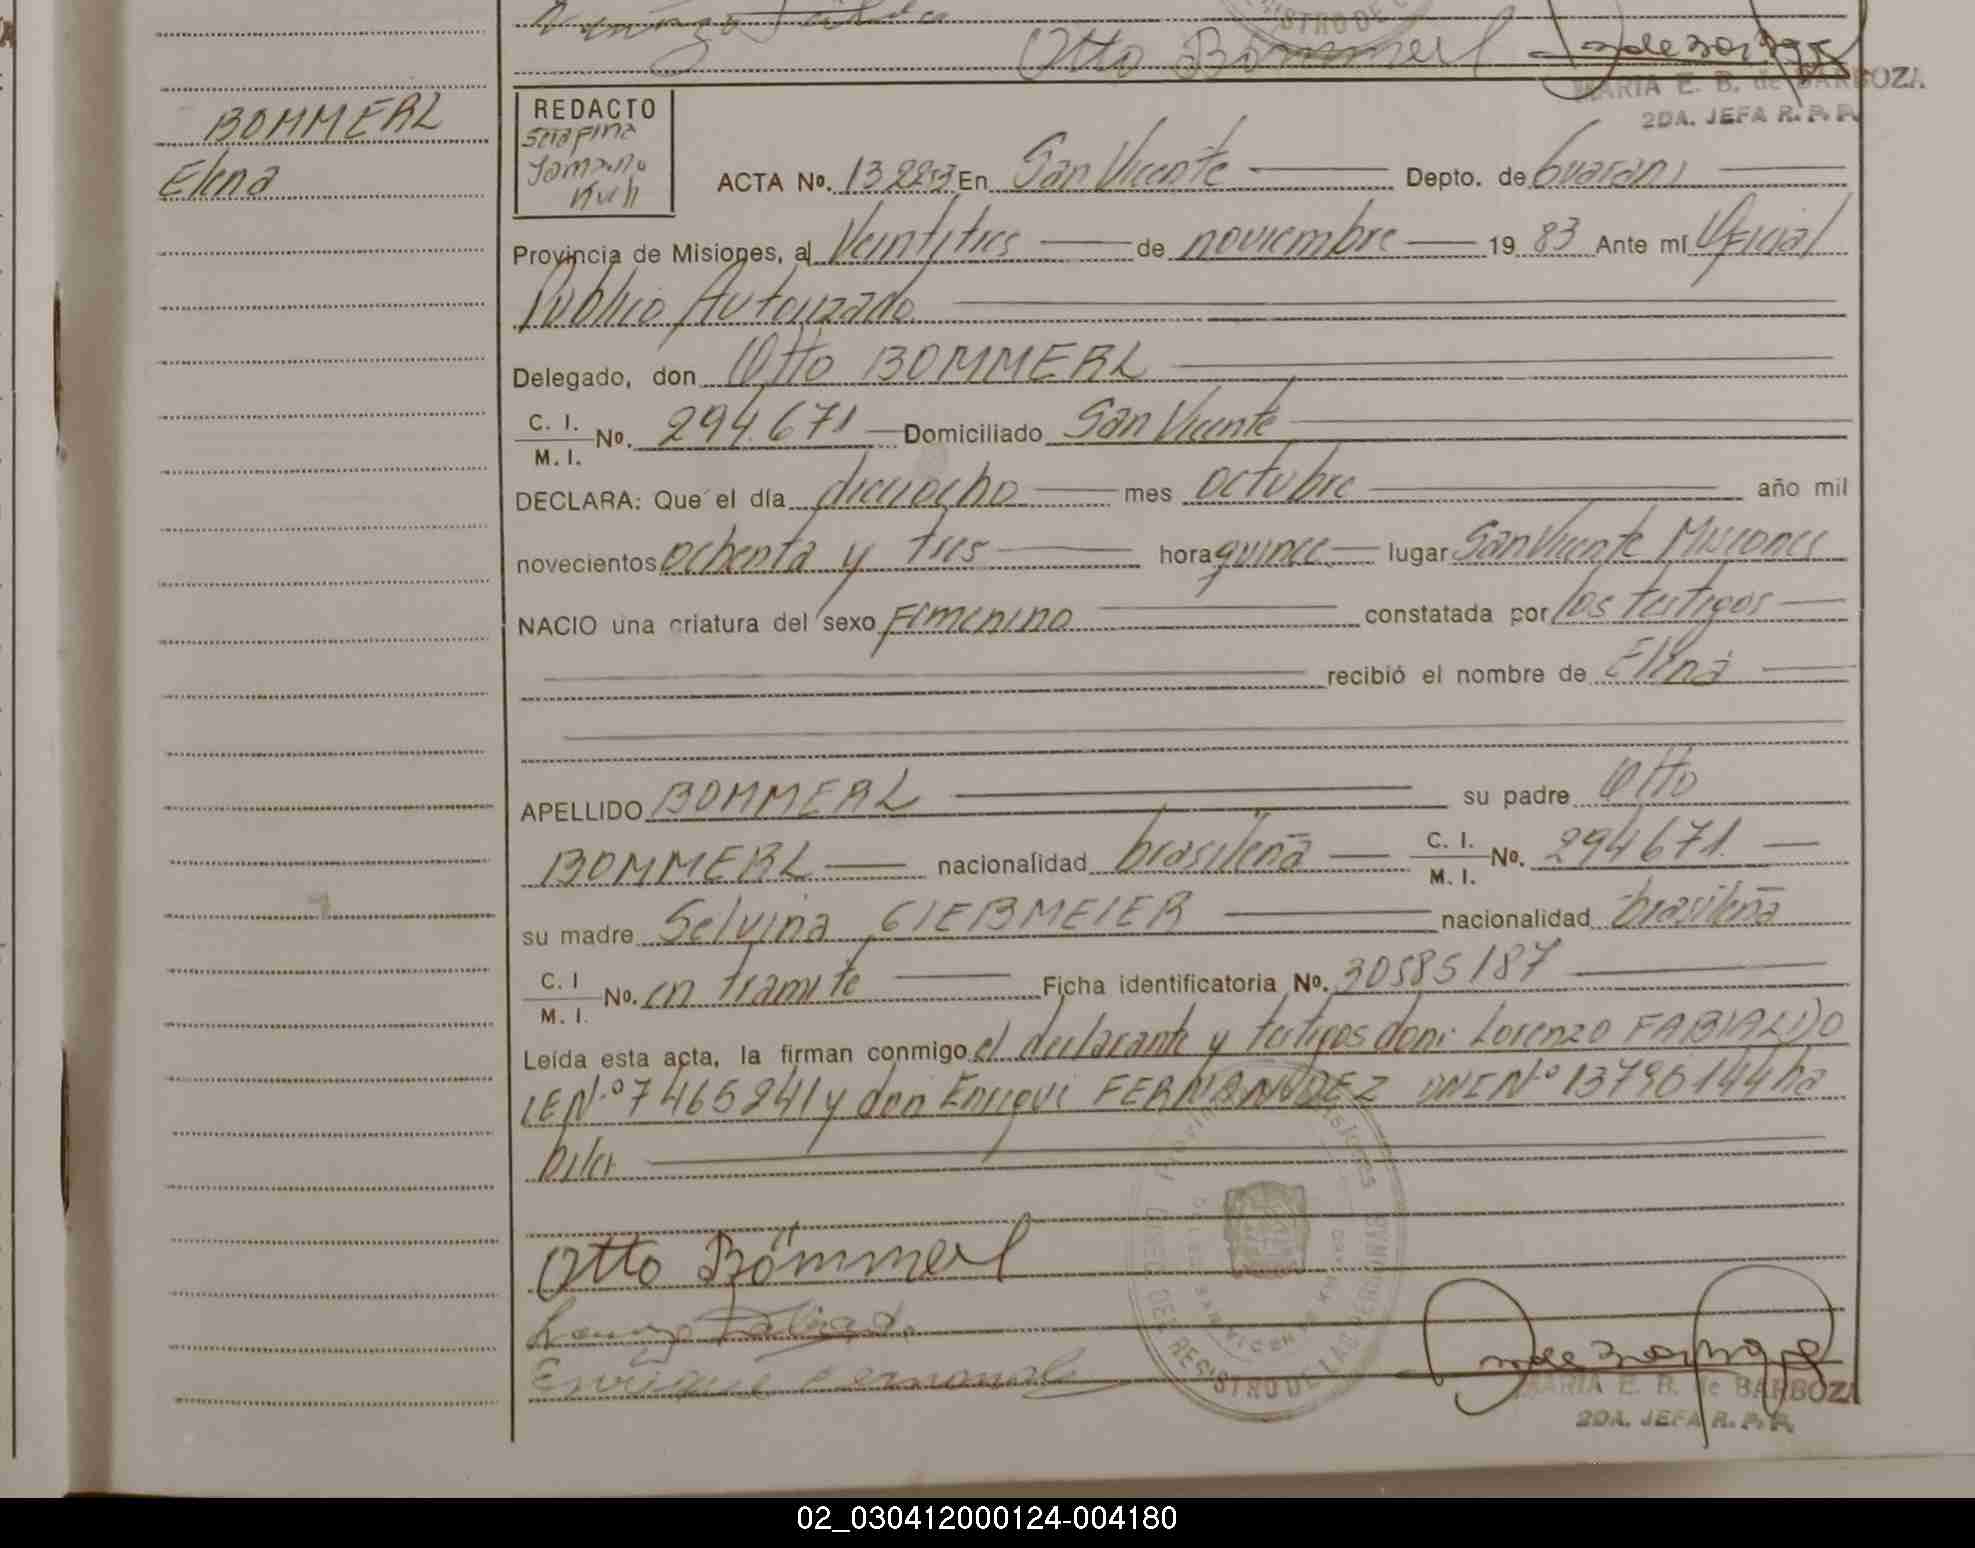 STRO DE
Otto Bömmerl
MARIA E. B. de BARBOZA
2DA. JEFA R. P. P.
BOMMERL
Elena
REDACTO
Serafina
Kuh
ACTA No. En San Vicente Depto. de Guaraní
Provincia de Misiones, al Veintitres de noviembre 19 83 Ante mí Oficial
Público Autorizado
Delegado, don Otto BOMMERL
C. I.
M. I. No. 294.671 Domiciliado San Vicente
DECLARA: Que el día dieciocho mes octubre año mil
novecientos ochenta y tres hora quince lugar San Vicente Misiones
NACIO una criatura del sexo Femenino constatada por los testigos
recibió el nombre de Elena
APELLIDO BOMMERL su padre Otto
BOMMERL nacionalidad brasileña C. I. M. I. No. 294671.
su madre Selvina GIEBMEIER nacionalidad brasileña
C. I M. I. No. en tramite Ficha identificatoria No. 30585187
Leída esta acta, la firman conmigo el declarante y testigos don: Lorenzo FABIALDO
LEN.º 7465241 y don Enrique FERNANDEZ DNI Nº 13796144 ha
biles
Otto Bömmerl
Enrique Fernandez
DIREC. DEL REGISTRO DE LAS PERSONAS
MARIA E. B. de BARBOZA
2DA. JEFA R. P. P.
02_030412000124-004180